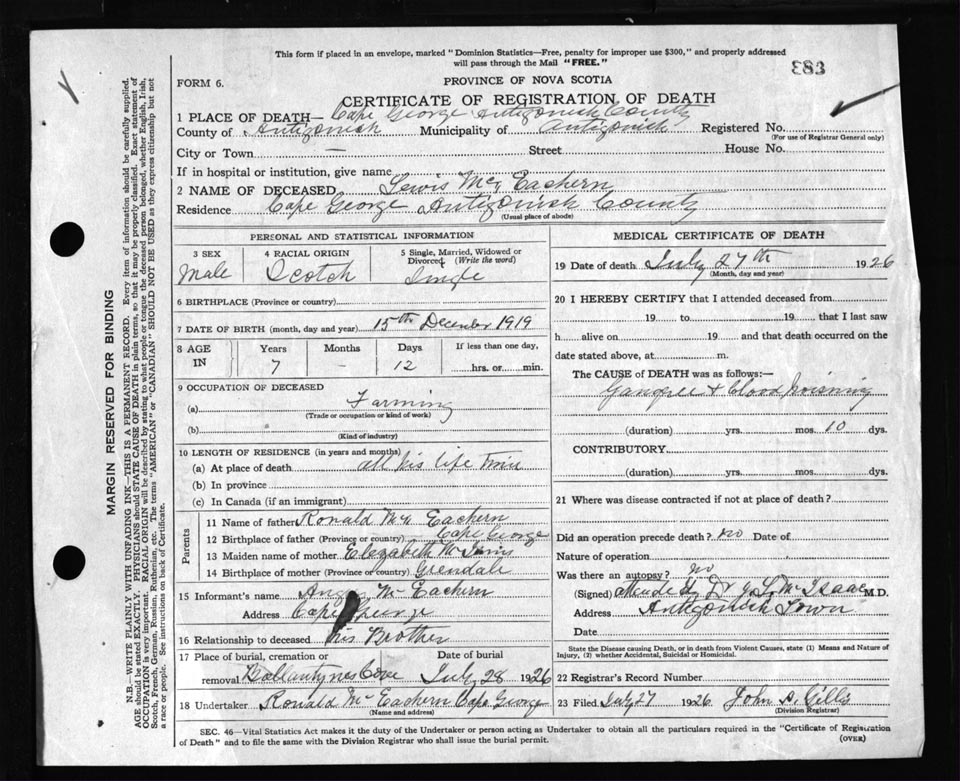 This form if placed in an envelope, marked "Dominion Statistics—Free, penalty for improper use $300," and properly addressed
will pass through the Mail "FREE."
883
FORM 6.
PROVINCE OF NOVA SCOTIA
CERTIFICATE OF REGISTRATION OF DEATH
1 PLACE OF DEATH— Cape George Antigonish County
County of Antigonish Municipality of Antigonish Registered No.
(For use of Registrar General only)
City or Town — Street House No.
If in hospital or institution, give name
2 NAME OF DECEASED Lewis Mc Eachern
Residence Cape George Antigonish County
(Usual place of abode)
MARGIN RESERVED FOR BINDING
N.B.—WRITE PLAINLY WITH UNFADING INK—THIS IS A PERMANENT RECORD. Every item of information should be carefully supplied.
AGE should be stated EXACTLY. PHYSICIANS should STATE CAUSE OF DEATH in plain terms, so that it may be properly classified. Exact statement of
OCCUPATION is very important. RACIAL ORIGIN will be described by stating to what people or tongue the deceased person belonged, whether English, Irish,
Scotch, French, German, Russian, Ruthenian, etc. The terms "AMERICAN" or "CANADIAN" SHOULD NOT BE USED as they express citizenship but not
a race or people. See instructions on back of Certificate.
PERSONAL AND STATISTICAL INFORMATION
3 SEX
Male
4 RACIAL ORIGIN
Scotch
5 Single, Married, Widowed or
Divorced (Write the word)
Single
6 BIRTHPLACE (Province or country)
7 DATE OF BIRTH (month, day and year) 15th December 1919
8 AGE IN
Years Months Days If less than one day,
7 — 12 hrs. or min.
9 OCCUPATION OF DECEASED
(a) Farming
(Trade or occupation or kind of work)
(b)
(Kind of industry)
10 LENGTH OF RESIDENCE (in years and months)
(a) At place of death all his life time
(b) In province
(c) In Canada (if an immigrant)
Parents
11 Name of father Ronald Mc Eachern
12 Birthplace of father (Province or country) Cape George
13 Maiden name of mother Elizabeth Mc Innis
14 Birthplace of mother (Province or country) Glendale
15 Informant's name Angus Mc Eachern
Address Cape George
16 Relationship to deceased his Brother
17 Place of burial, cremation or Date of burial
removal Ballantynes Cove July 28 1926
18 Undertaker Ronald Mc Eachern Cape George
(Name and address)
MEDICAL CERTIFICATE OF DEATH
19 Date of death July 27th 1926
(Month, day and year)
20 I HEREBY CERTIFY that I attended deceased from
19 to 19 that I last saw
h alive on 19 and that death occurred on the
date stated above, at m.
The CAUSE of DEATH was as follows:—
Gangree & blood poisining
(duration) yrs. mos. 10 dys.
CONTRIBUTORY
(duration) yrs. mos. dys.
21 Where was disease contracted if not at place of death?
Did an operation precede death? no Date of
Nature of operation
Was there an autopsy? no
(Signed) Dr Mc Isaac M.D.
Address Antigonish Town
Date
State the Disease causing Death, or in death from Violent Causes, state (1) Means and Nature of
Injury, (2) whether Accidental, Suicidal or Homicidal.
22 Registrar's Record Number
23 Filed July 27 1926 John A. Gillis
(Division Registrar)
SEC. 46—Vital Statistics Act makes it the duty of the Undertaker or person acting as Undertaker to obtain all the particulars required in the "Certificate of Registration
of Death" and to file the same with the Division Registrar who shall issue the burial permit.
(OVER)